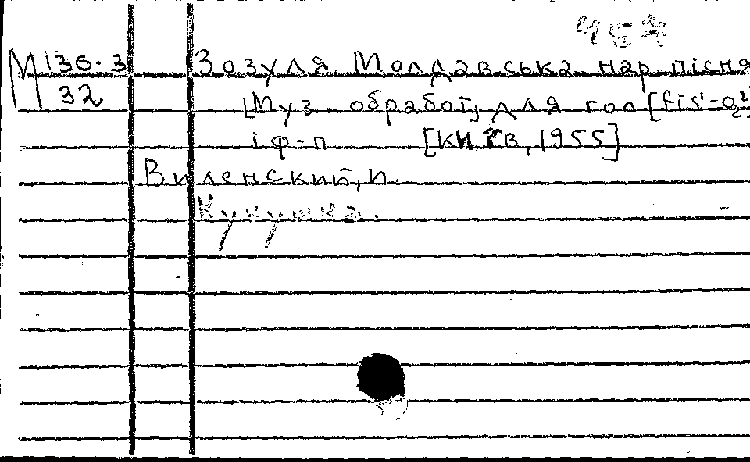 457
М 136.3 Зозуля. Молдавська нар. пісня
32 [Муз. обработ] для гол. [fis'-g²]
і ф-п [Київ, 1955]
Виленский, И.
Кукушка.